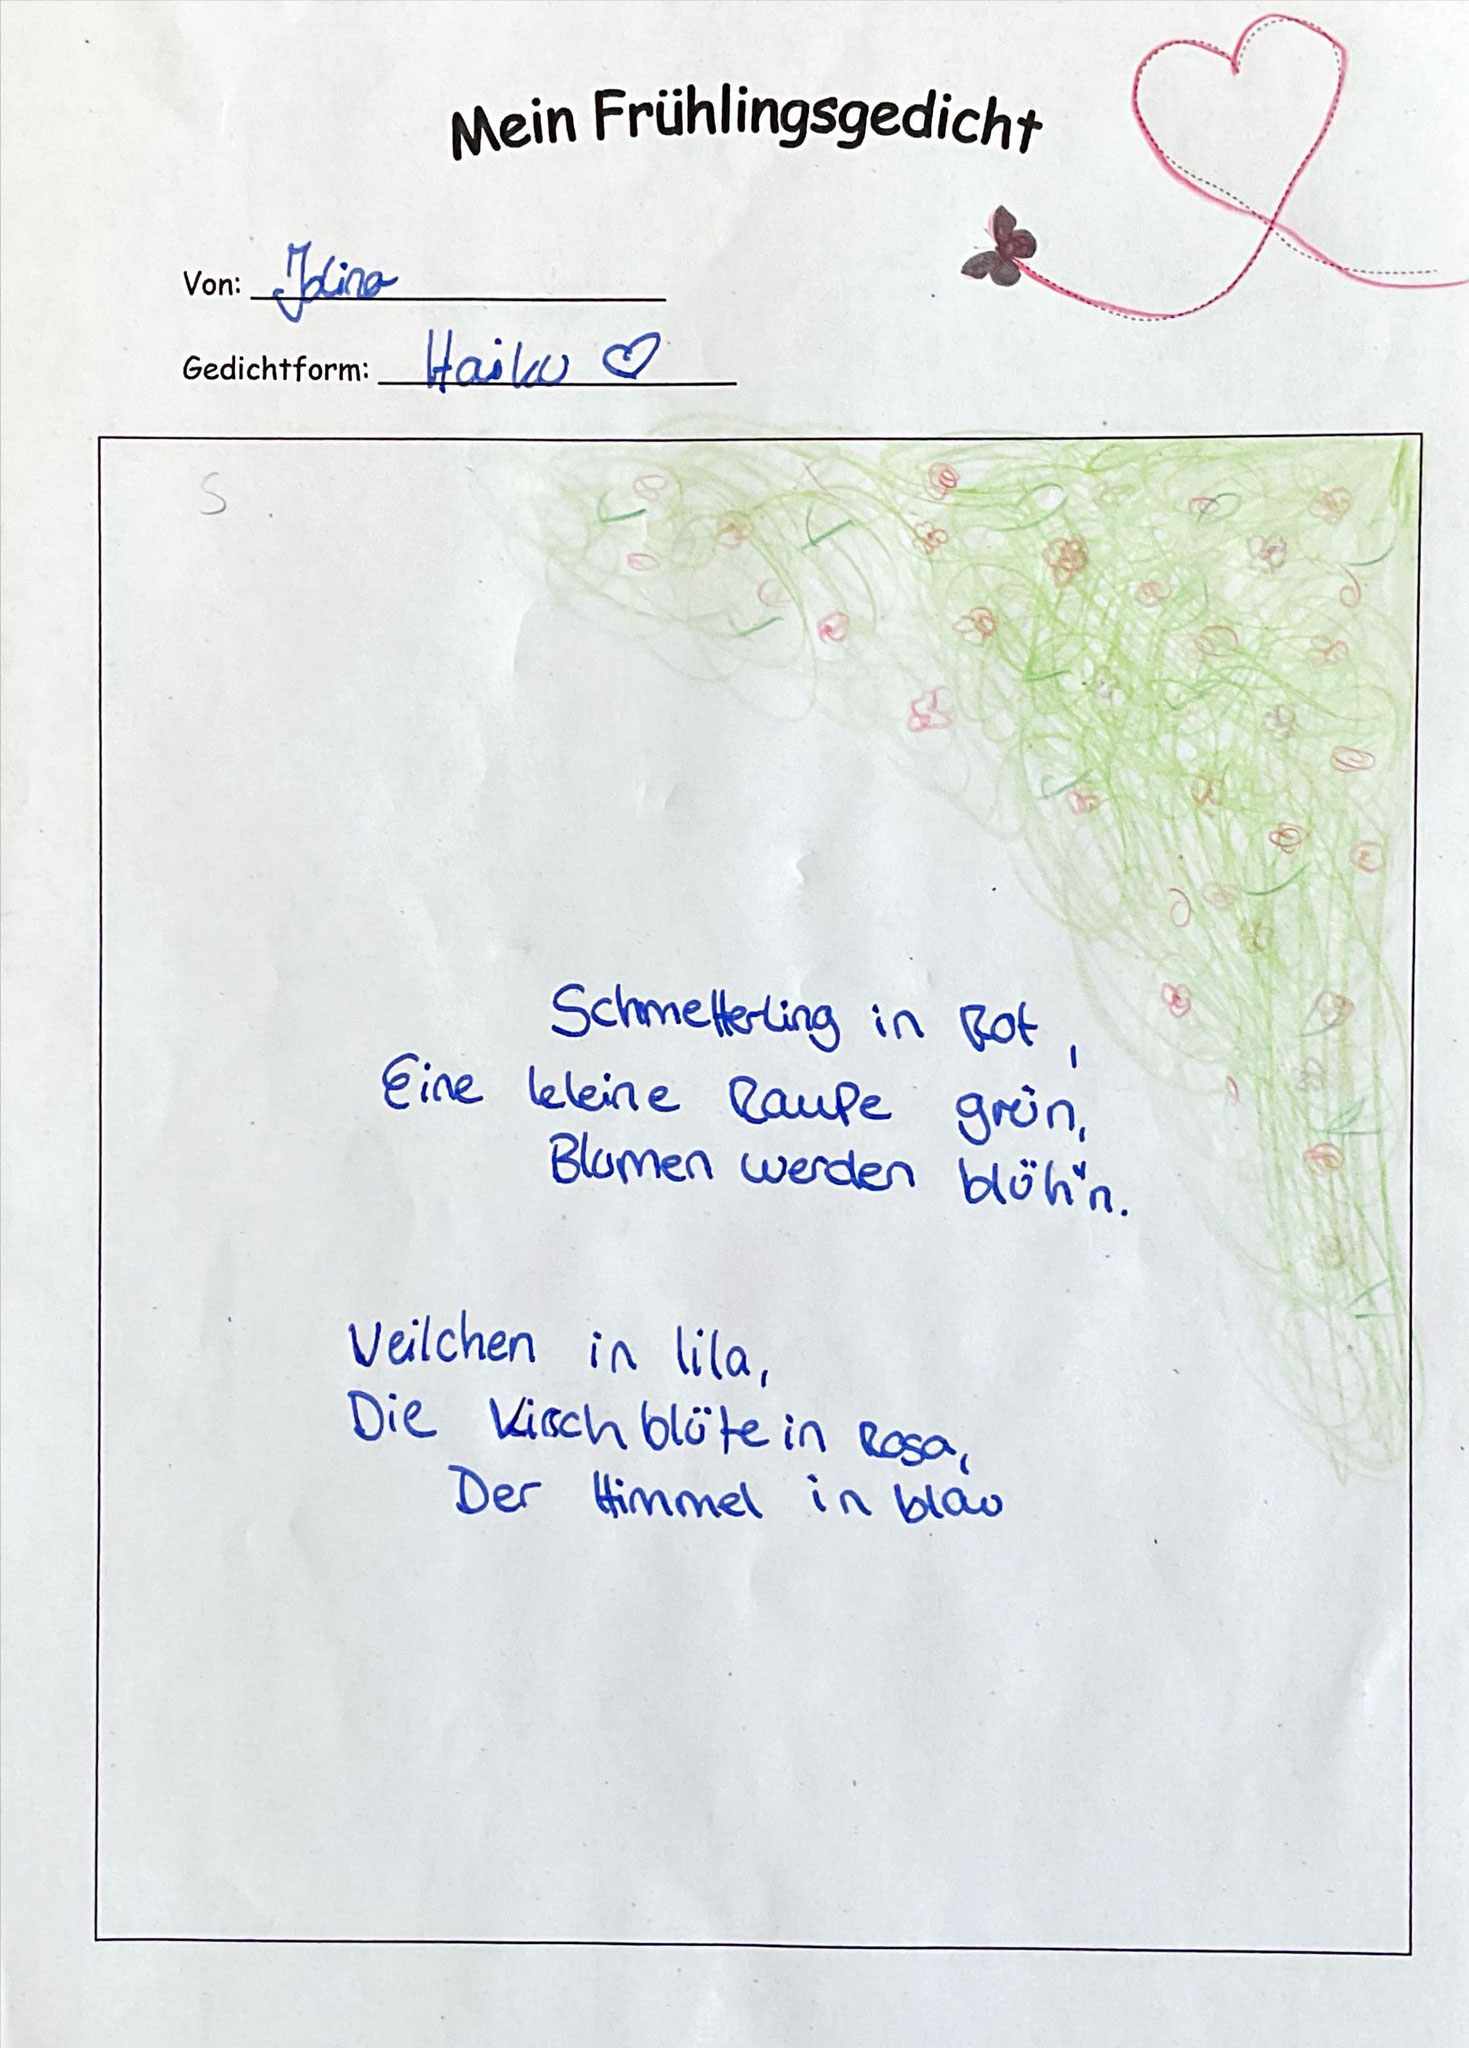 Mein Frühlingsgedicht
Von: Jolina
Gedichtform: Haiku ♡
S
Schmetterling in Rot,
Eine kleine Raupe grün,
Blumen werden blüh'n.
Veilchen in lila,
Die Kirschblüte in Rosa,
Der Himmel in blau